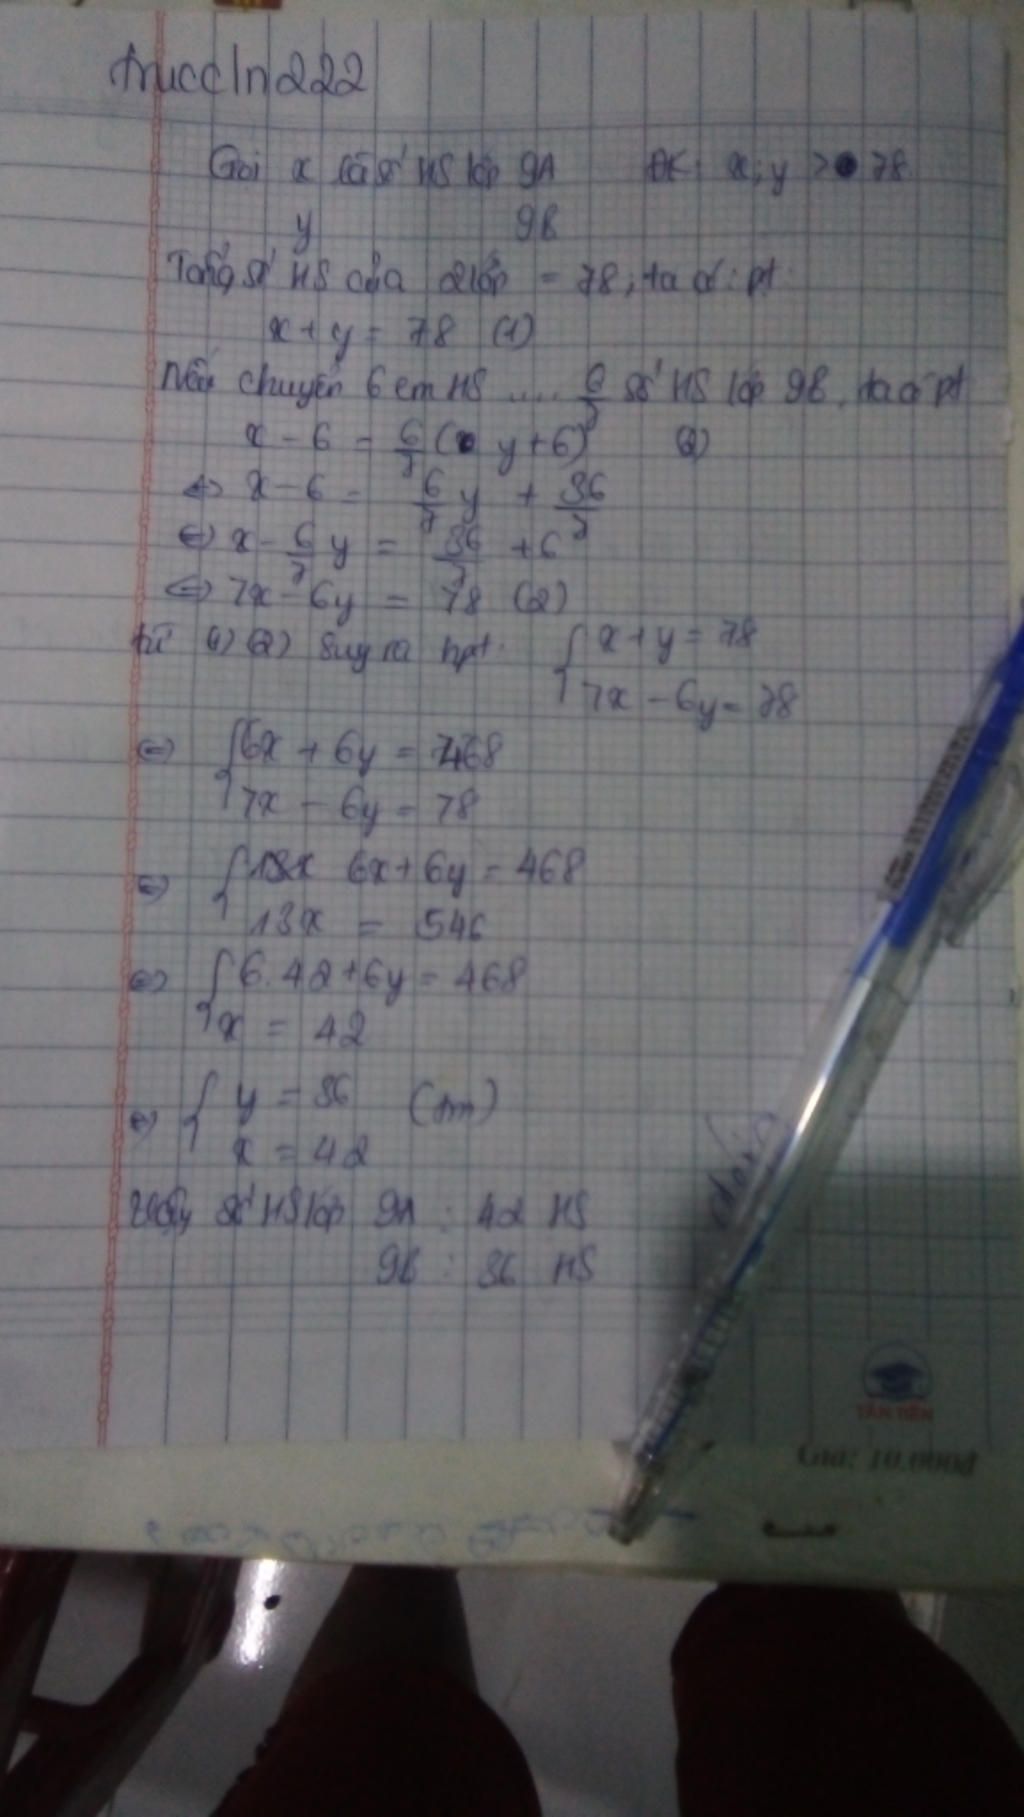 truccln222
Gọi x là số HS lớp 9A ĐK: x; y > 78
y 9B
Tổng số HS của 2 lớp = 78, ta có: pt:
x + y = 78 (1)
Nếu chuyển 6 em HS .... 6/7 số HS lớp 9B, ta có pt
x - 6 = 6/7 (y + 6) (2)
<=> x - 6 = 6/7 y + 36/7
<=> x - 6/7 y = 36/7 + 6
<=> 7x - 6y = 78 (2)
từ (1) (2) suy ra hpt: { x + y = 78
7x - 6y = 78
<=> { 6x + 6y = 468
7x - 6y = 78
<=> { 6x + 6y = 468
13x = 546
<=> { 6.42 + 6y = 468
x = 42
<=> { y = 36 (tm)
x = 42
Vậy số HS lớp 9A : 42 HS
9B : 36 HS
TÂN TIẾN
Giá: 10.000đ